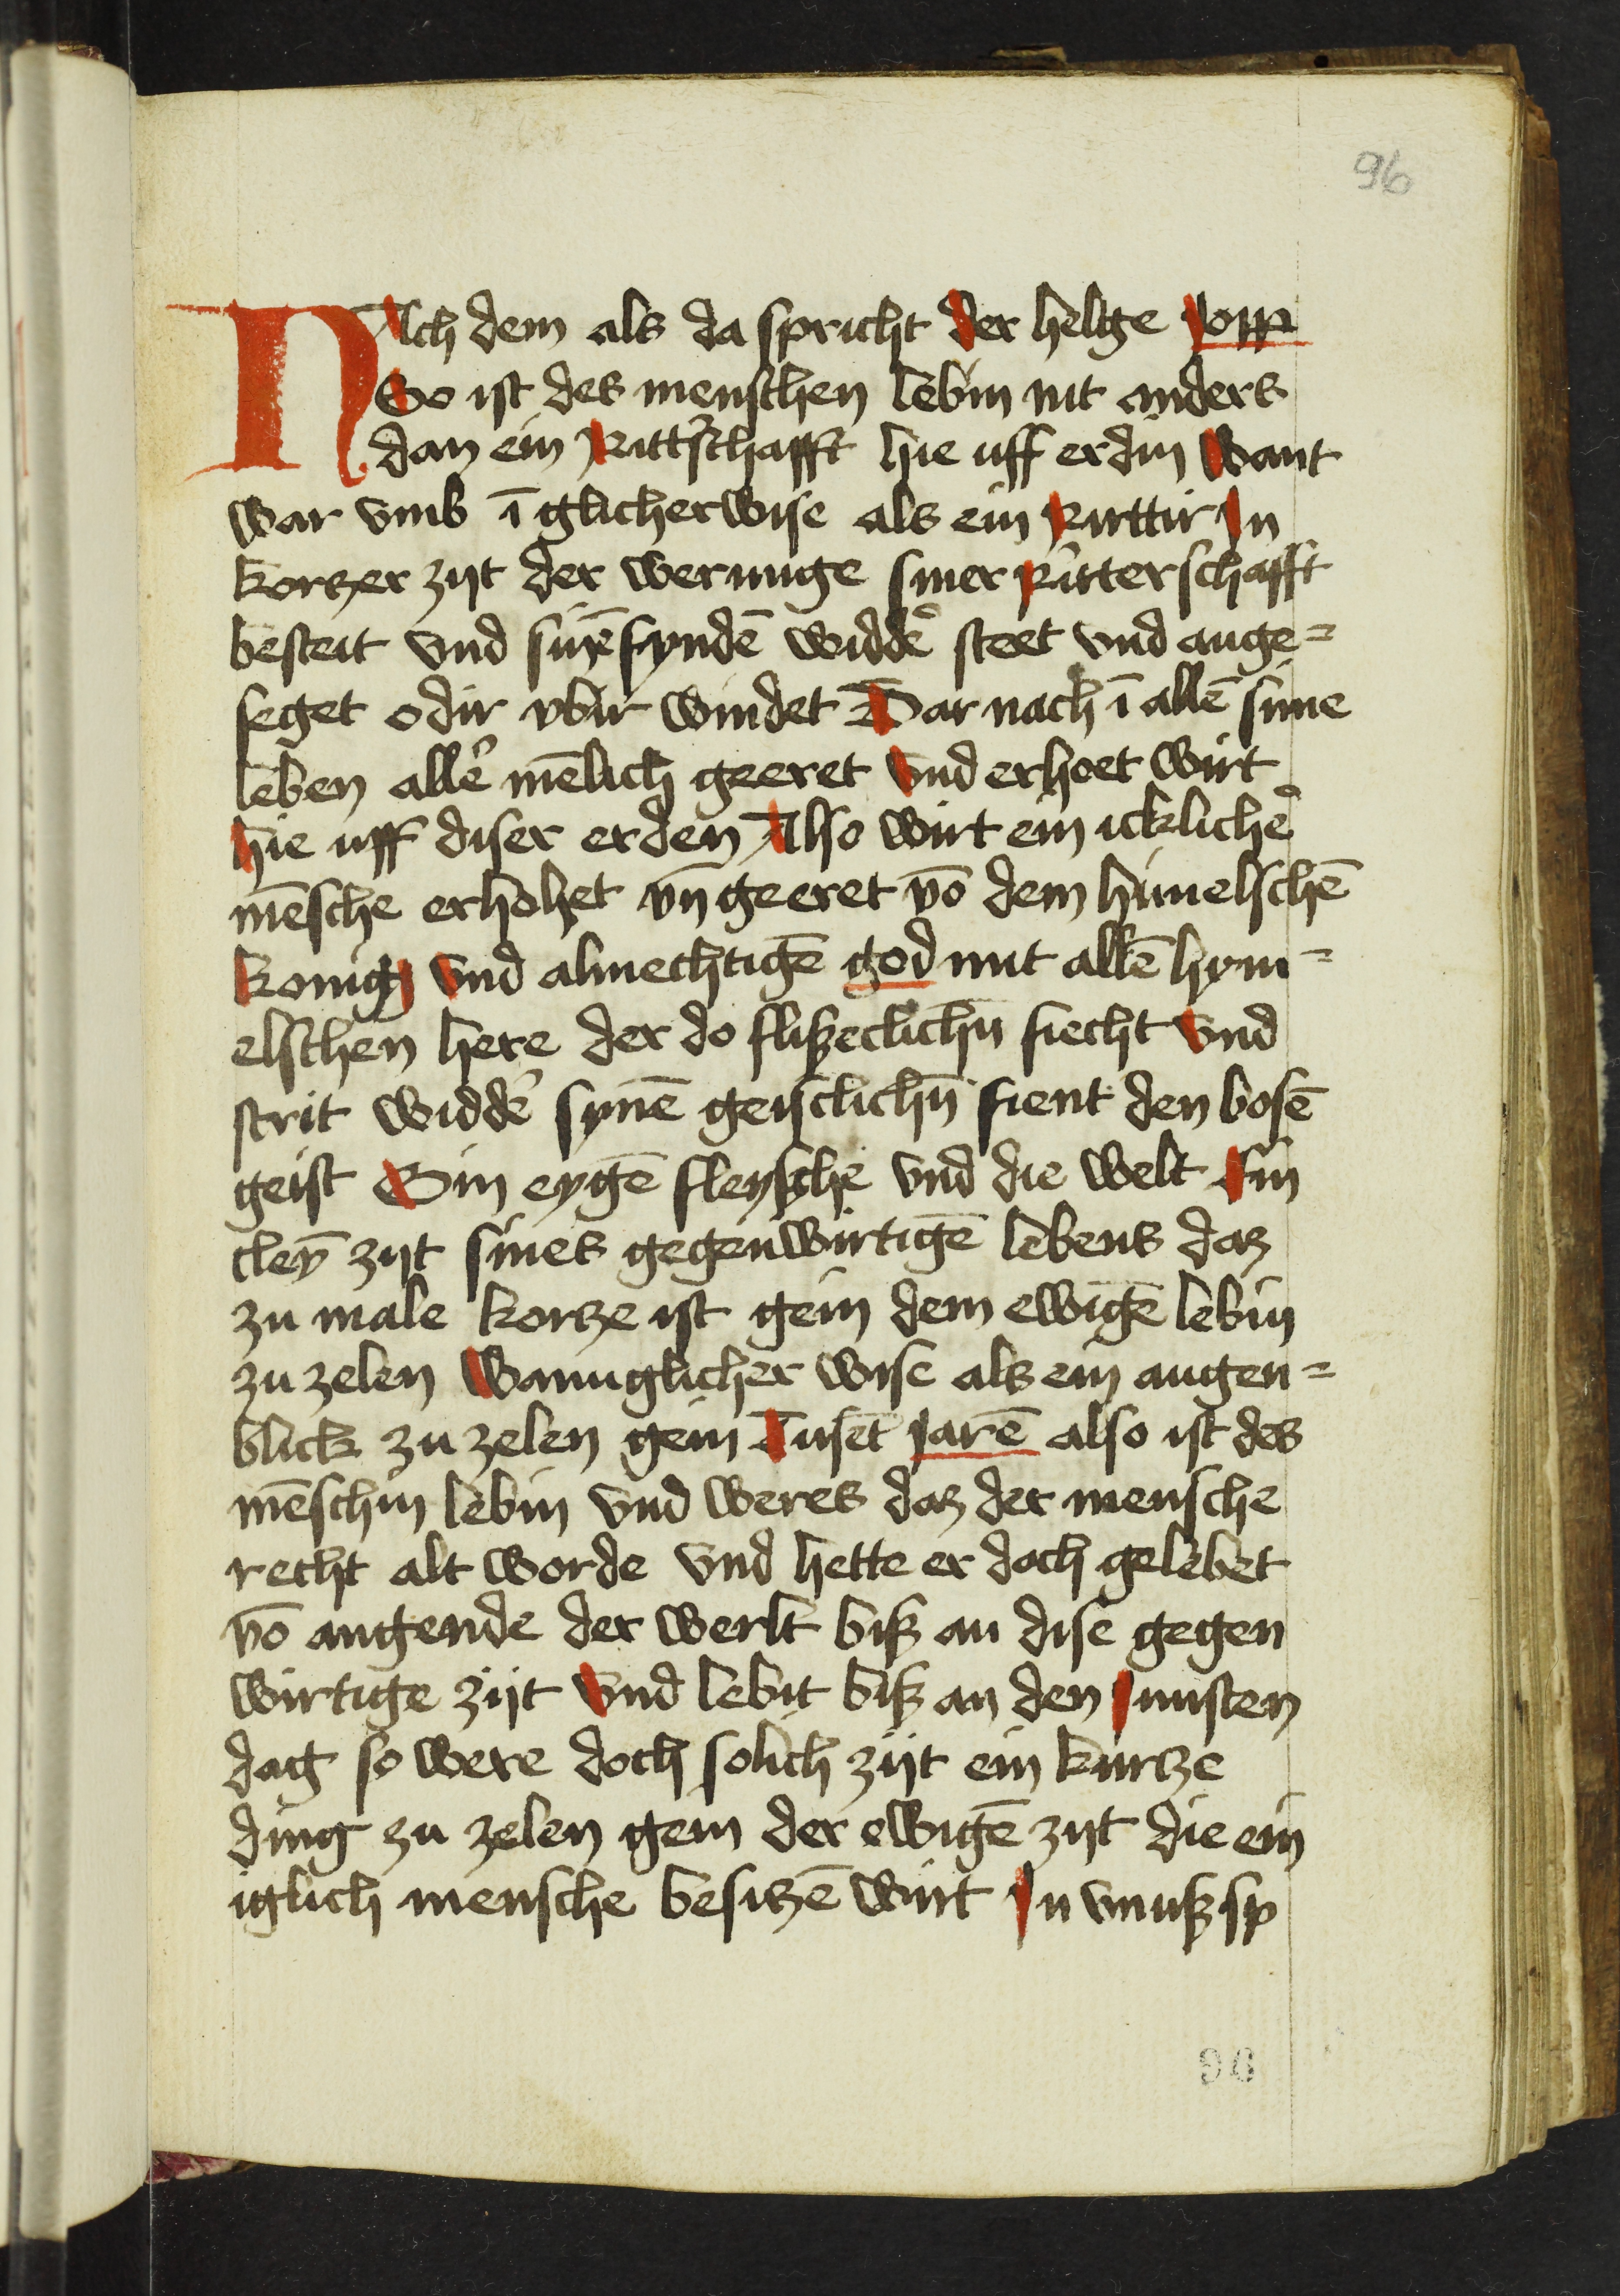 96
NAch dem als da spricht der helige Jopp
So ist des menschen lebin nit anders
dan ein Ritt'schafft hie uff erdin Want
war vmb ī glicherwise als ein Rirttir In
kortzer zijt der werunge siner Ritterschafft
besteit vnd sinē fyndē widdē steet vnd ange=
seget odir vbir windet Dar nach ī allē sime
leben allē mēlich geeret vnd erhoet wirt
hie uff diser erden Also wirt ein icklichē
mēsche erhohet vn̄ geeret vō dem himelschē
konig vnd almechtigē god mit allē hym=
elschen here der do flißeclichn̄ fiecht vnd
strit widdē synē geistlichn̄ fient den bosē
geist Sin eygē fleysche vnd die welt Ein
cleȳ zijt sines gegenwirtigē lebens daz
zu male kortze ist gein dem ewigē lebin
zu zelen Wannglicher wise als ein augen=
blick zu zelen gein Tusēt jarē also ist des
mēschin lebin vnd weres daz der mensche
recht alt worde vnd hette er doch gelebet
vō angende der werlt biß an dise gegen
wirtige zijt vnd lebit biß an den junsten
dag so were doch solich zijt ein kurtze
ding zu zelen gein der ewigē zijt die ein
iglich mensche besitzē wirt In vnußsp
96